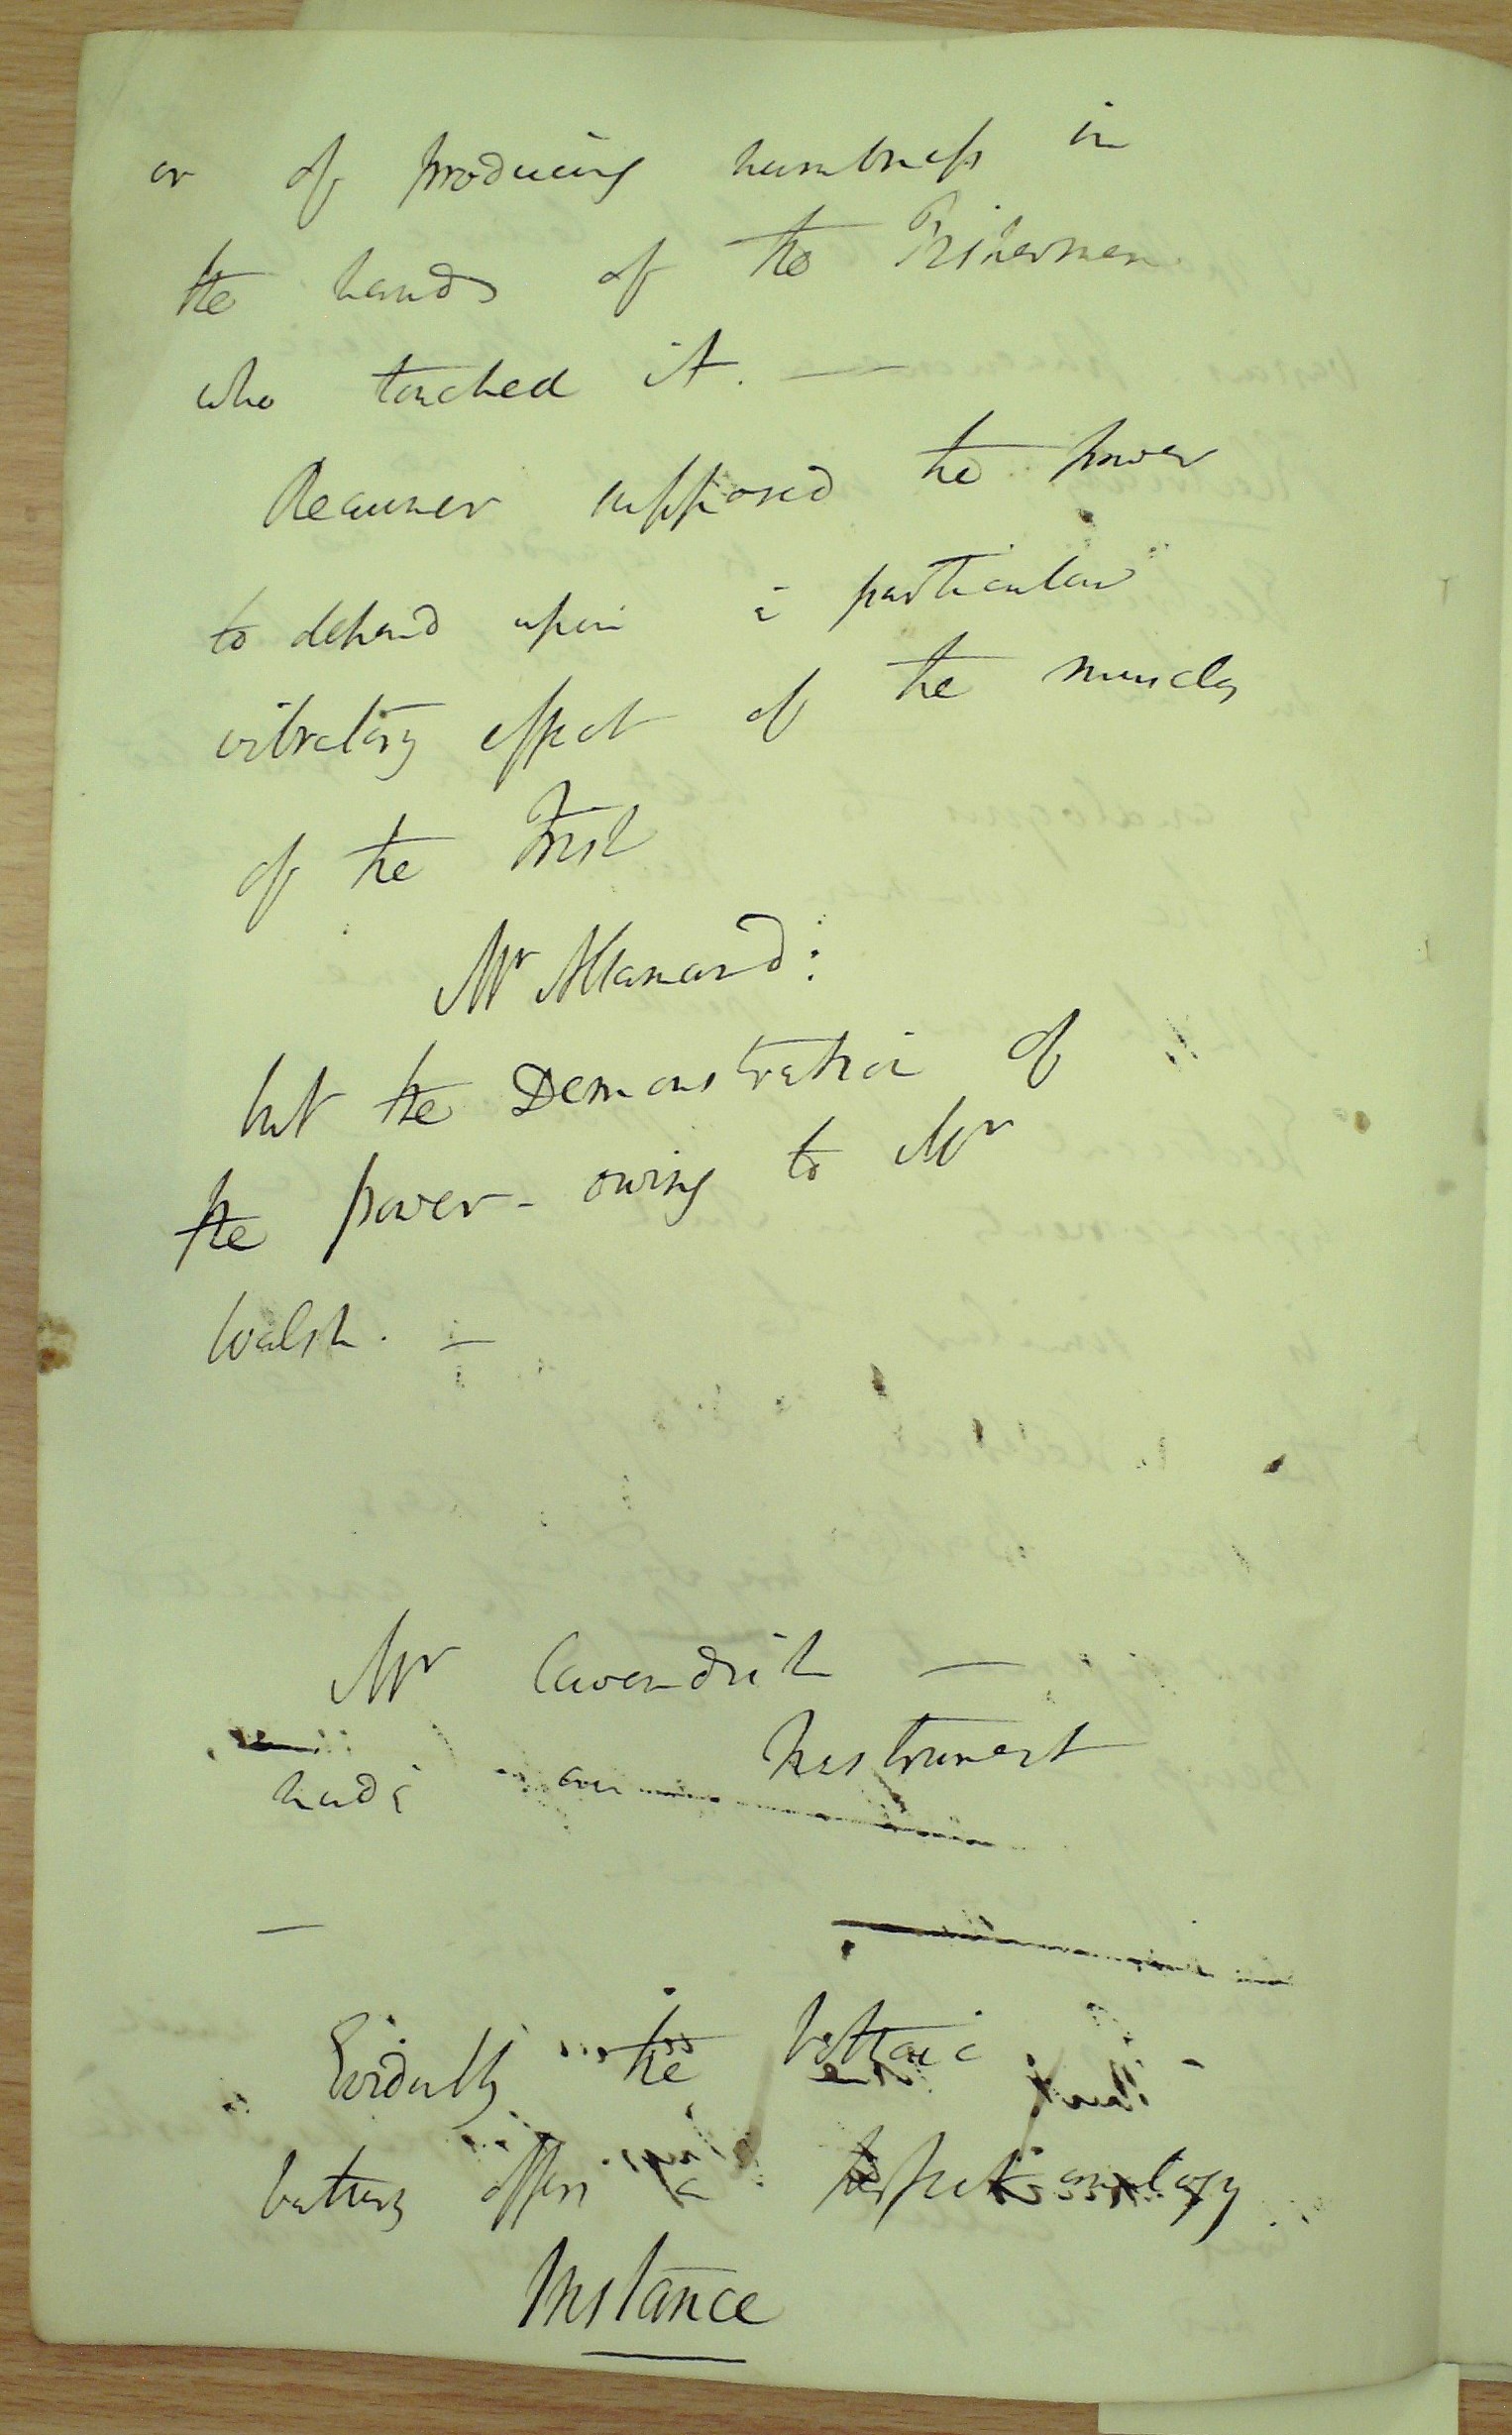 or of producing numbness in
the hands of the Fishermen
who touched it. —
Reaumer supposed the power
to depend upon a particular
vibratory effect of the muscles
of the Fish
Mr
but the Demonstration of
the power - owing to Mr
Walsh. —
Mr Cavendish —
made an Instrument
—
Evidently the Voltaic
battery offers a perfect analogy
Instance